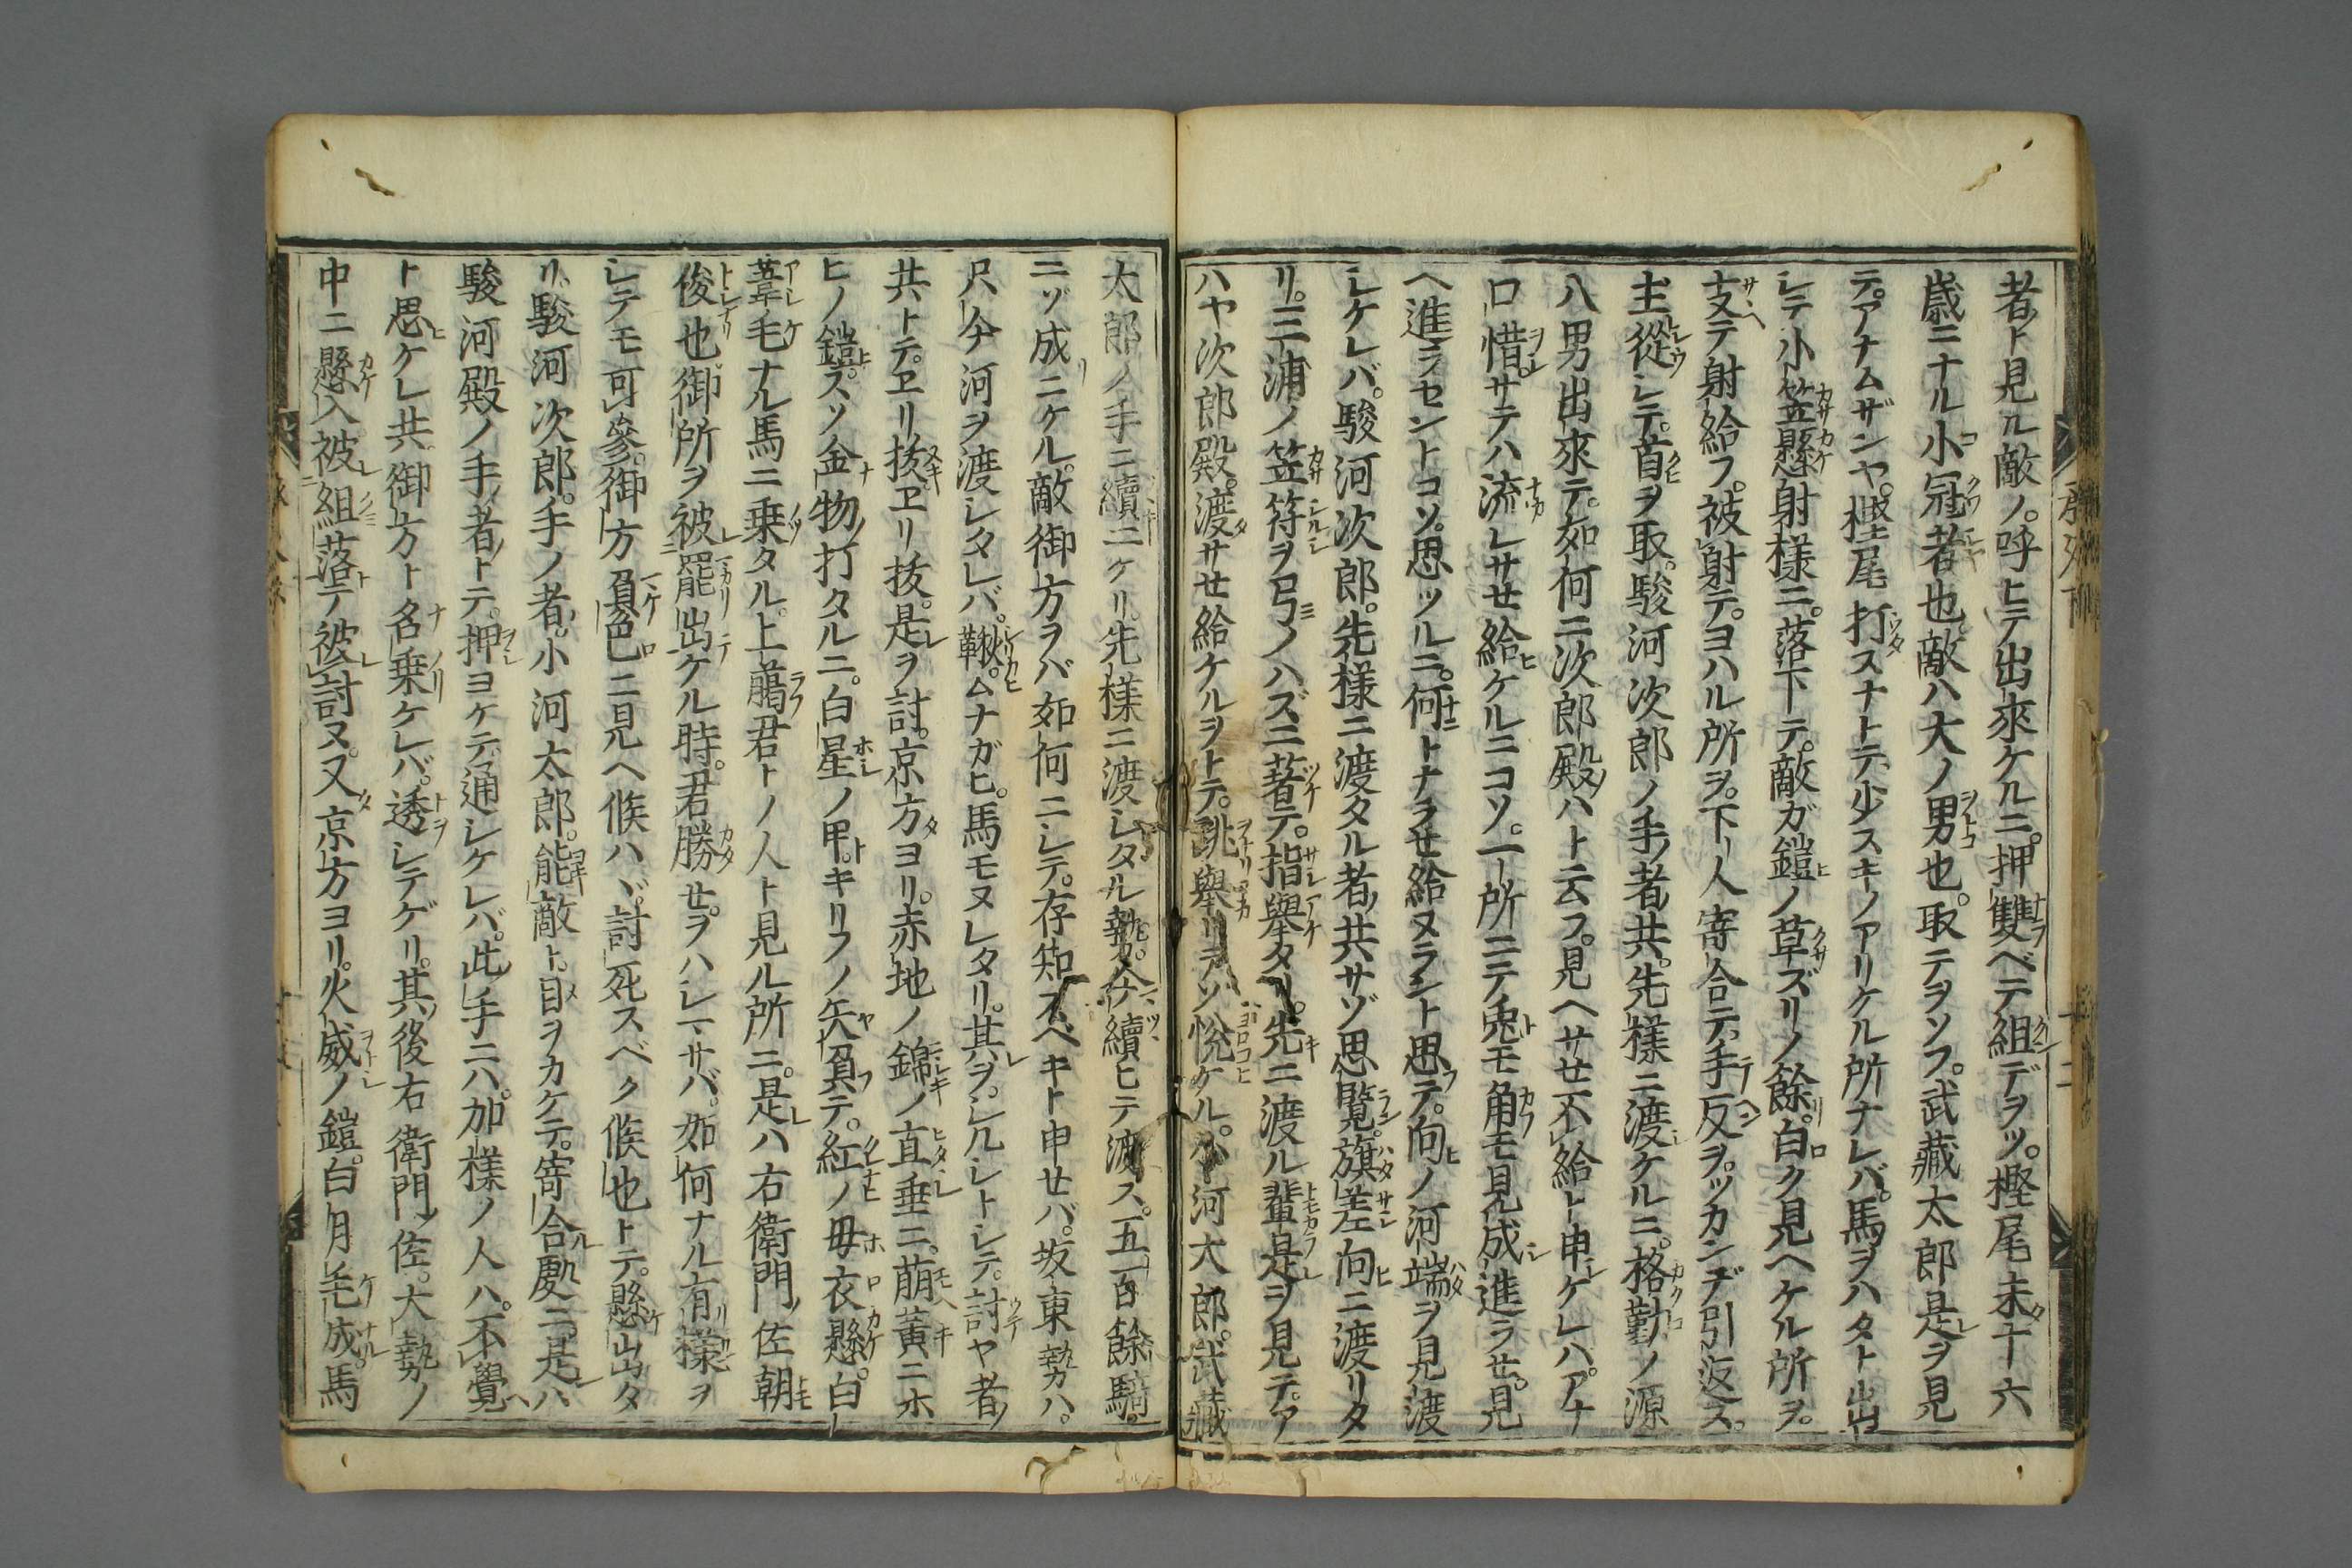 者ト見ル敵ノ。呼ヒテ出來ケルニ。押雙ベテ組デヲツ。樫尾未十六
歳ニナル小冠者也。敵ハ大ノ男也。取テヲソフ。武藏太郎是ヲ見
テ。アナムザンヤ。樫尾打スナトテ。少スキノアリケル所ナレバ。馬ヲハタト出
シテ小笠懸射樣ニ。落下テ。敵ガ鎧ノ草ズリノ餘。白ク見ヘケル所ヲ。
支テ射給フ。被射テ。ヨハル所ヲ。下人寄合テ。手反ヲ。ツカンデ引返ス。
主從シテ。首ヲ取。駿河次郎ノ手者共。先樣ニ渡ケルニ。格勤ノ源
八男出來テ。如何ニ次郎殿ハト云フ。見ヘサせ不給ト申ケレハ。アナ
口惜。サテハ流レサせ給ケルニコソ。一所ニテ兎モ角モ見成進ラせ。見
ヘ進ラセントコソ。思ツルニ。何トナラせ給ヌラント思テ。向ノ河端ヲ見渡
シケレバ。駿河次郎。先樣ニ渡タル者共サゾ思覽。旗差向ニ渡リタ
リ。三浦ノ笠符ヲ弓ノハズニ著テ。指擧タリ。先ニ渡ル輩是ヲ見テ。ア
ハヤ次郎殿。渡サせ給ケルヲトテ。跳擧リテゾ悅ケル。小河太郎。武藏
太郎ノ手ニ續ニケリ。先樣ニ渡シタル勢。今續ヒテ渡ス。五百餘騎。
ニゾ成ニケル。敵御方ヲバ如何ニシテ。存知スベキト申せバ。坂東勢ハ。
只今河ヲ渡シタレバ。鞦。ムナガヒ。馬モヌレタリ。其ヲ。シルシトシテ。討ヤ者
共トテ。ヱリ拔ヱリ拔。是ヲ討。京方ヨリ。赤地ノ錦ノ直垂ニ。萠黃ニホ
ヒノ鎧。スソ金物打タルニ。白星ノ甲。キリフノ矢負テ。紅ノ母衣懸。白
葦毛ナル馬ニ乘タル。上﨟君トノ人ト見ル所ニ。是ハ右衛門佐朝
俊也。御所ヲ被罷出ケル時。君勝せヲハシマサバ。如何ナル有樣ヲ
シテモ可參。御方負色ニ見ヘ候ハヾ。討死スベク候也トテ。懸出タ
リ。駿河次郎。手ノ者。小河太郎。能敵ト。目ヲカケテ。寄合處ニ。是ハ
駿河殿ノ手ノ者トテ。押ヨケテ。通シケレバ。此手ニハ。加樣ノ人ハ。不覺
ト思ケレ共。御方ト名乘ケレバ。透シテゲリ。其後右衛門佐。大勢ノ
中ニ懸入。被組落テ被討ヌ。又京方ヨリ。火威ノ鎧。白月毛成。馬